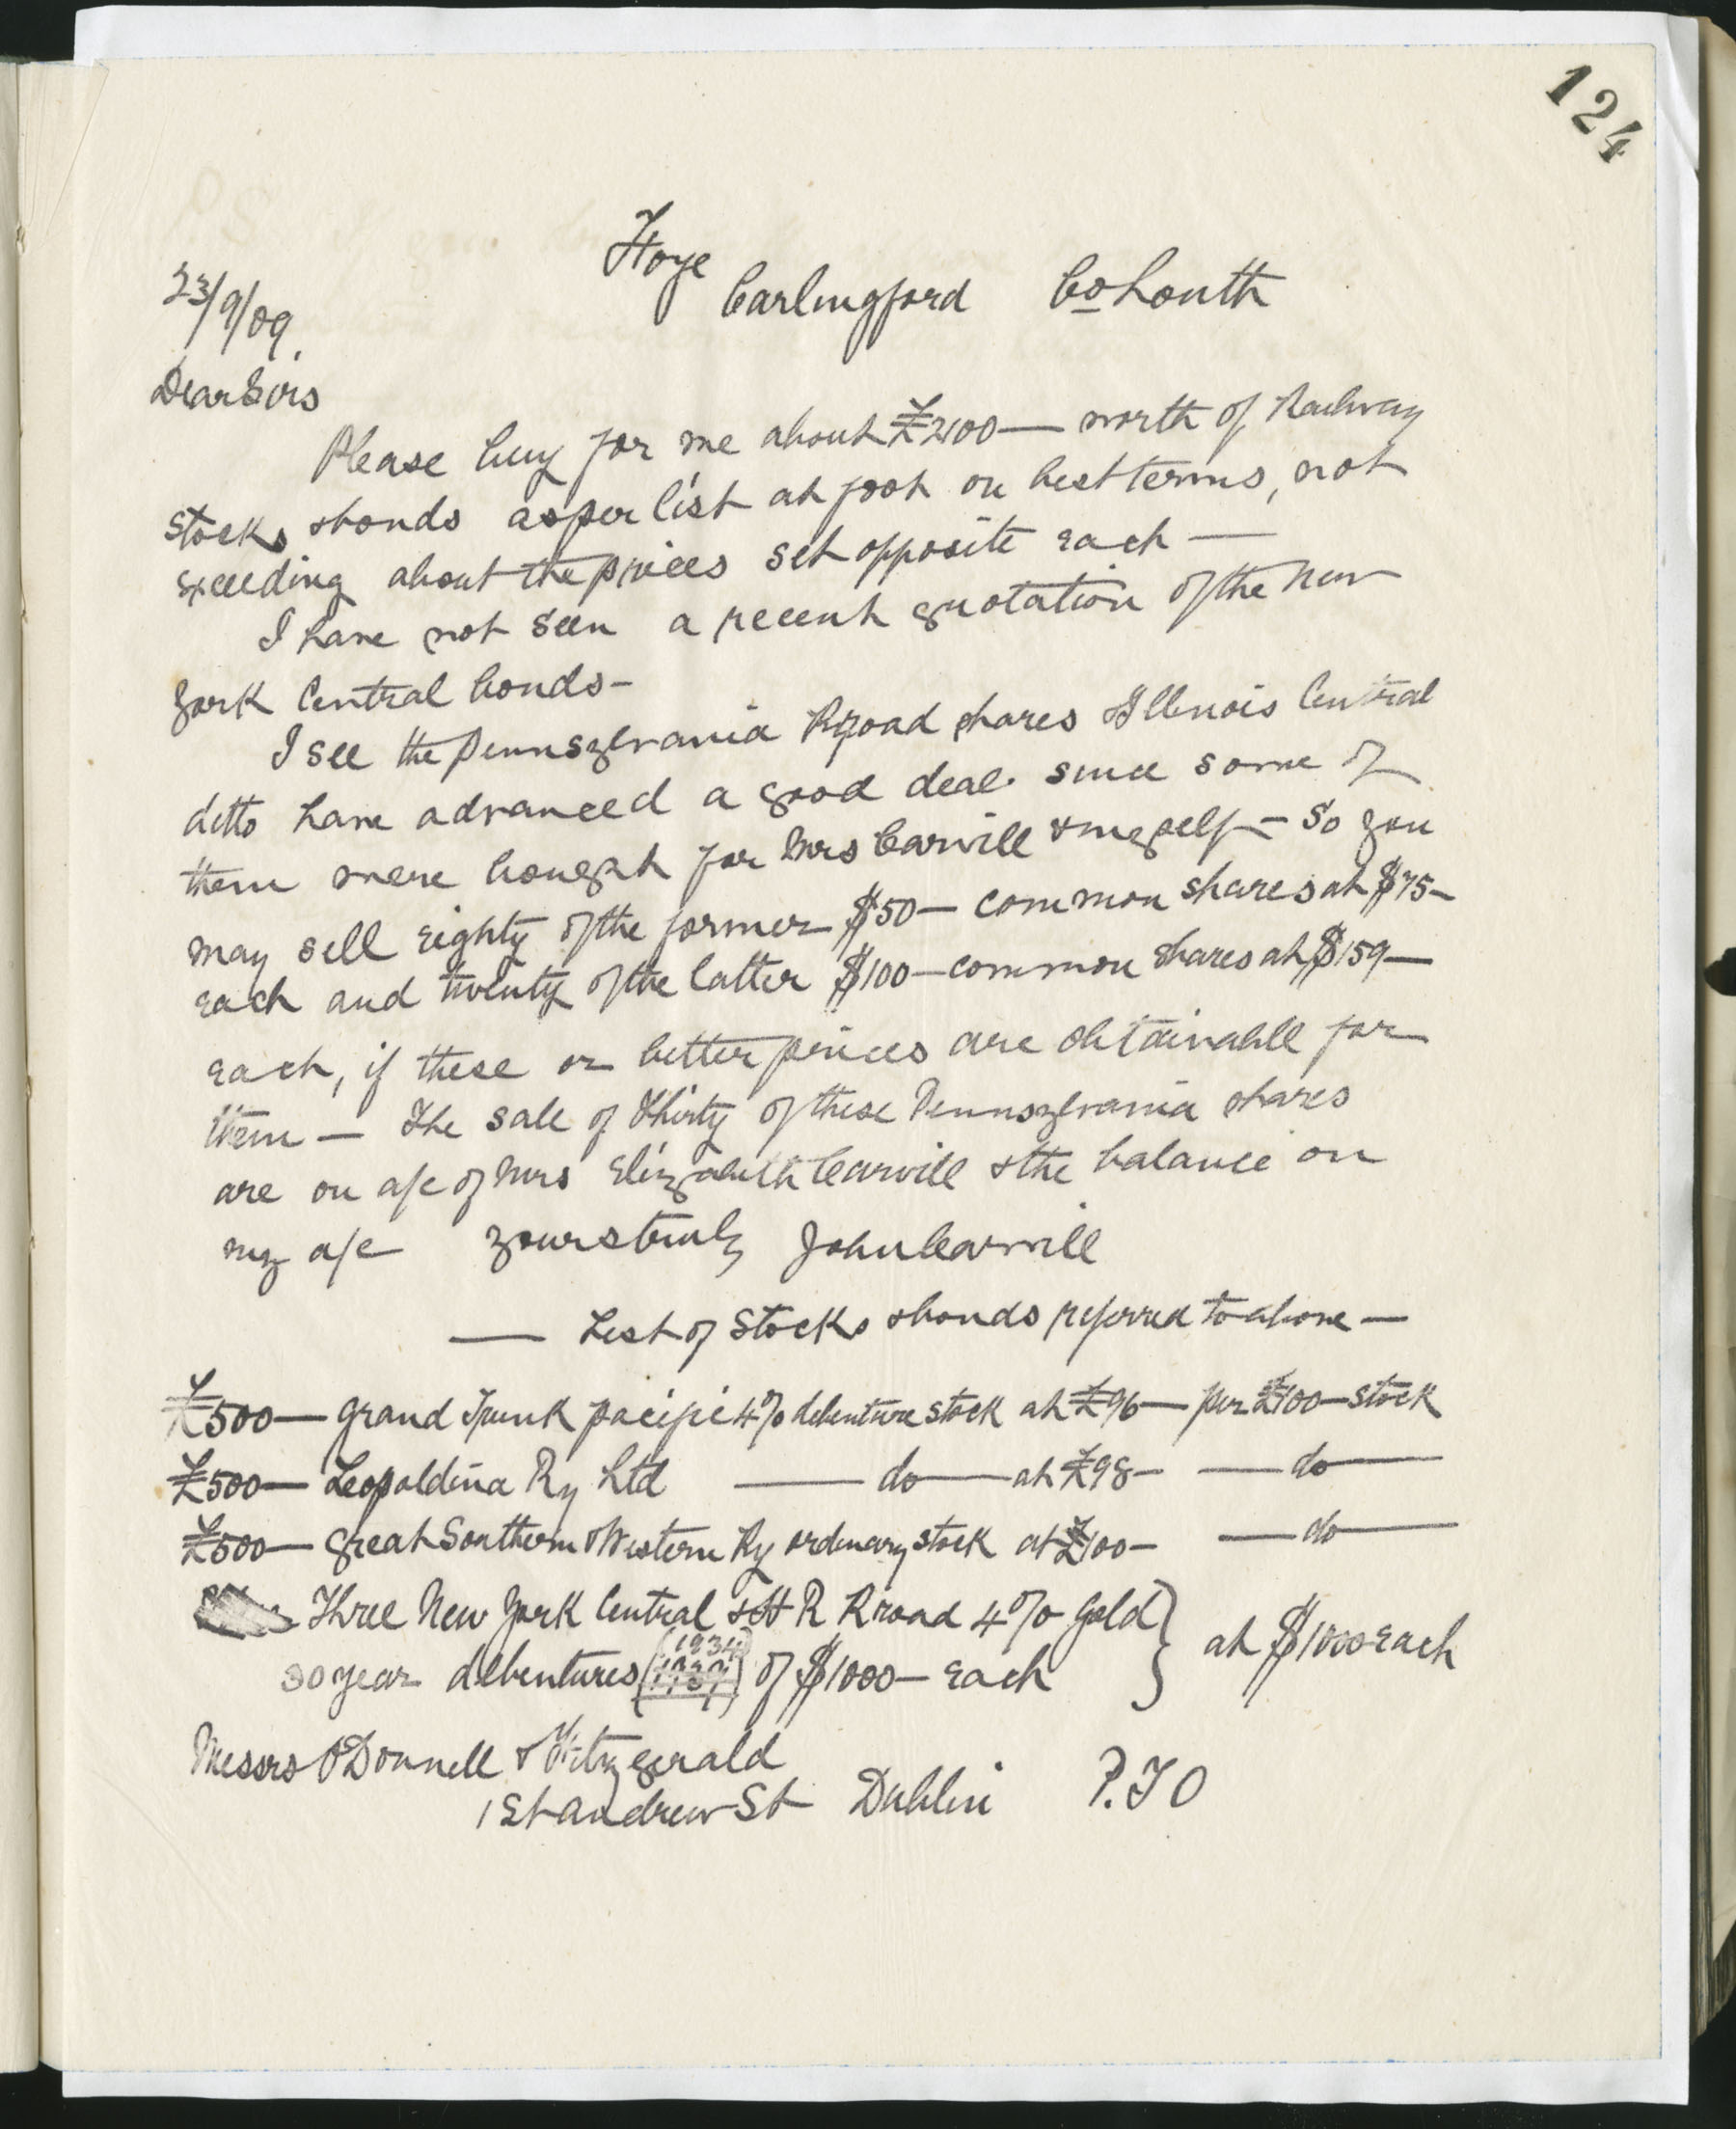 124
Foye
Carlingford Co Louth
23/9/09.
Dear Sirs
Please buy for me about £2100— worth of Railway
stocks & bonds as per list at foot on best terms, not
exceeding about the prices set opposite each —
I have not seen a recent quotation of the New
York Central bonds –
I see the Pennsylvania Rroad shares & Illinois Central
ditto have advanced a good deal since some of
them were bought for Mrs Carvill & myself – So you
may sell eighty of the former $50— common shares at $75–
each and twenty of the latter $100— common shares at $159—
each, if these or better prices are obtainable for
them — The sale of Thirty of these Pennsylvania shares
are on a/c of Mrs Elizabeth Carvill & the balance on
my a/c Yours truly John Carvill
— List of Stocks & bonds referred to above —
£500— Grand Trunk pacific 4% debenture stock at £96— per £100— stock
£500— Leopoldina Ry Ltd — do — at £98– — do —
£500— Great Southern & Western Ry ordinary stock at £100– — do —
Three New York Central & H R Rroad 4% Gold
(1934)
30 year debentures of $1000— each } at $1000 each
Messrs O'Donnell & Fitzgerald
1 St Andrew St Dublin P.T O